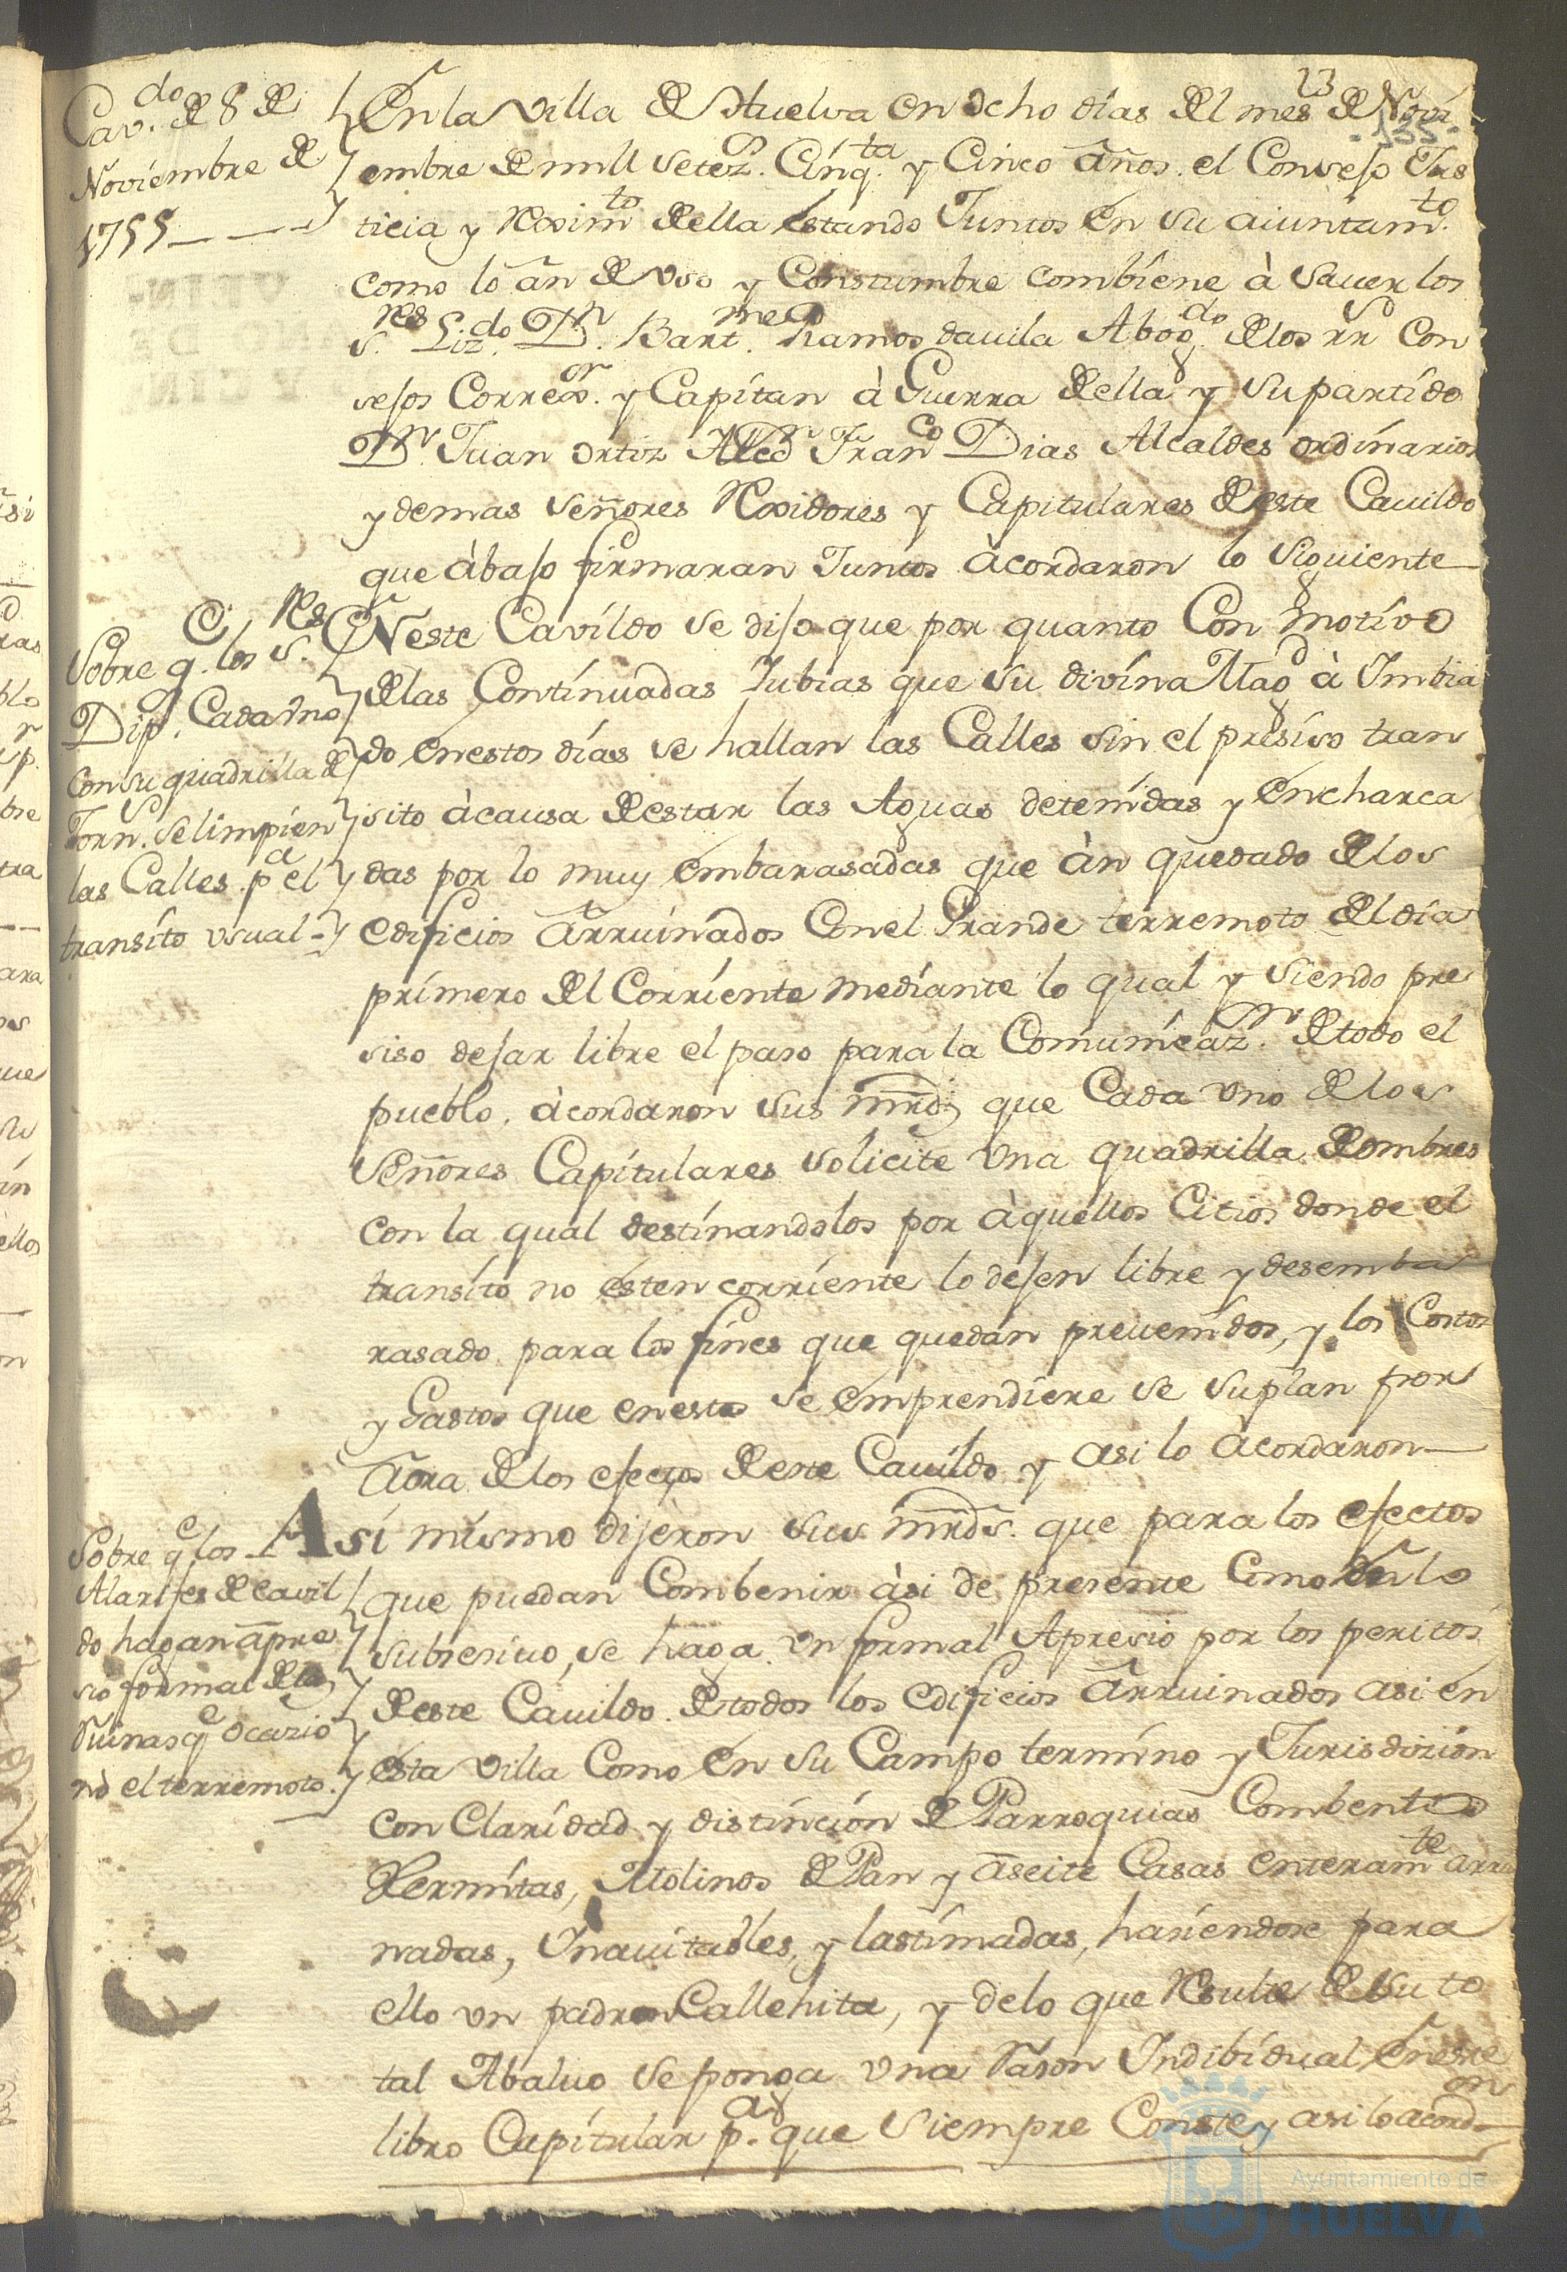 13
135
Cav.do de 8 de
Noviembre de
1755
En la villa de Huelva en ocho días del mes de Novi
embre de mill setez.s Cinq.ta y Cinco años. el Consejo Jus
ticia y Reximto della estando Juntos en su aiuntam.to
como lo an de uso y Constumbre combiene à saver los
s.res Liz.do Dn. Bart.me Ramos davila Abog.do de los rr.s Con
sejos Correx.or y Capitan à Guerra della y su partido
Dn. Juan ortiz Dn Franco Dias Alcaldes ordinarios
y demas señores Rexidores y Capitulares deste Cauildo
que àbajo firmaran Juntos àcordaron lo siguiente
Sobre q.e los s.res
Dip.s Cada uno
con su quadrilla de
Jorn.s se limpien
las Calles p.a el
transito usual
En este Cavildo se dijo que por quanto Con motivo
de las Continuadas lubias que su divina Magd à Imbia
do en estos días se hallan las Calles sin el presiso tran
sito àcausa de estar las Aguas detenidas y encharca
das por lo muy embarasadas que àn quedado de los
edificios arruinados Con el Grande terremoto del día
primero del Corriente mediante lo qual y siendo pre
siso dejar libre el paso para la Comunicaz.on de todo el
pueblo, àcordaron sus mrds que Cada uno de los
Señores Capitulares solicite una quadrilla de ombres
con la qual destinandolos por àquellos Citios donde el
transito no esten corriente lo dejen libre y desemba
rasado para los fines que quedan preuenidos, y los Costos
y Gastos que en esto se emprendiere se suplan por
aora de los efectos de este Cauildo y asi lo àcordaron
Sobre q.e los
Alarifes de cavil
do hagan apre
sio formal de las
Ruinas q.e ocasio
nò el terremoto.
Asi mismo dijeron sus mrds. que para los efectos
que puedan Combenir àsi de presente Como en lo
subsesiuo, se haga un formal Apresio por los peritos
deste Cauildo de todos los edificios Arruinados asi en
esta villa Como en su Campo termino y Jurisdizion
con Claridad y distincion de Parroquias Combentos
Hermitas, Molinos de Pan y aseite Casas enteramte arrui
nadas, Ynauitables, y lastimadas, hasiendose para
ello un padron Callehita, y de lo que Resulte de su to
tal Abaluo se ponga una Rason Indibidual en este
libro Capitular p.a que siempre Conste y asi lo acord.on
Ayuntamiento de
HUELVA